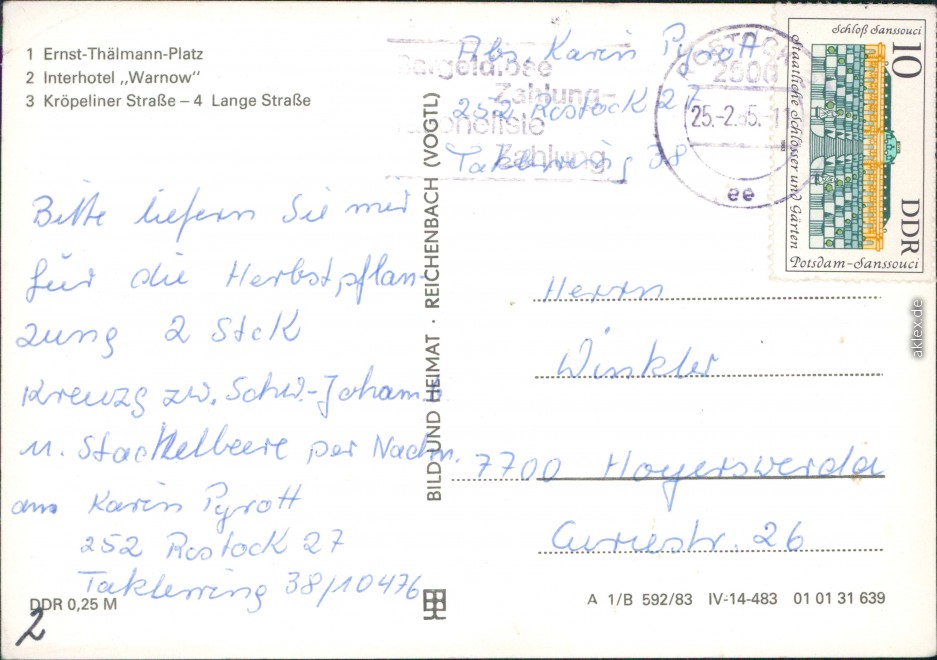 1 Ernst-Thälmann-Platz
2 Interhotel „Warnow"
3 Kröpeliner Straße – 4 Lange Straße
Bitte liefern Sie mir
für die Herbstpflan-
zung 2 Stck
Kreuzg zw. Schw.-Johann.b.
u. Stachelbeere per Nachn.
an Karin Pyrott
252 Rostock 27
Taklerring 38/10476
DDR 0,25 M
2
BILD UND HEIMAT · REICHENBACH (VOGTL)
Abs Karin Pyrott
252 Rostock 27
Taklerring 38
Bargeldlose
Zahlung-
rationellste
Zahlung
ROSTOCK
2500
25.-2.85.-11
ee
Schloß Sanssouci
10
DDR
Staatliche Schlösser und Gärten
Potsdam-Sanssouci
Herrn
Winkler
7700 Hoyerswerda
Curiestr. 26
A 1/B 592/83 IV-14-483 01 01 31 639
aklex.de